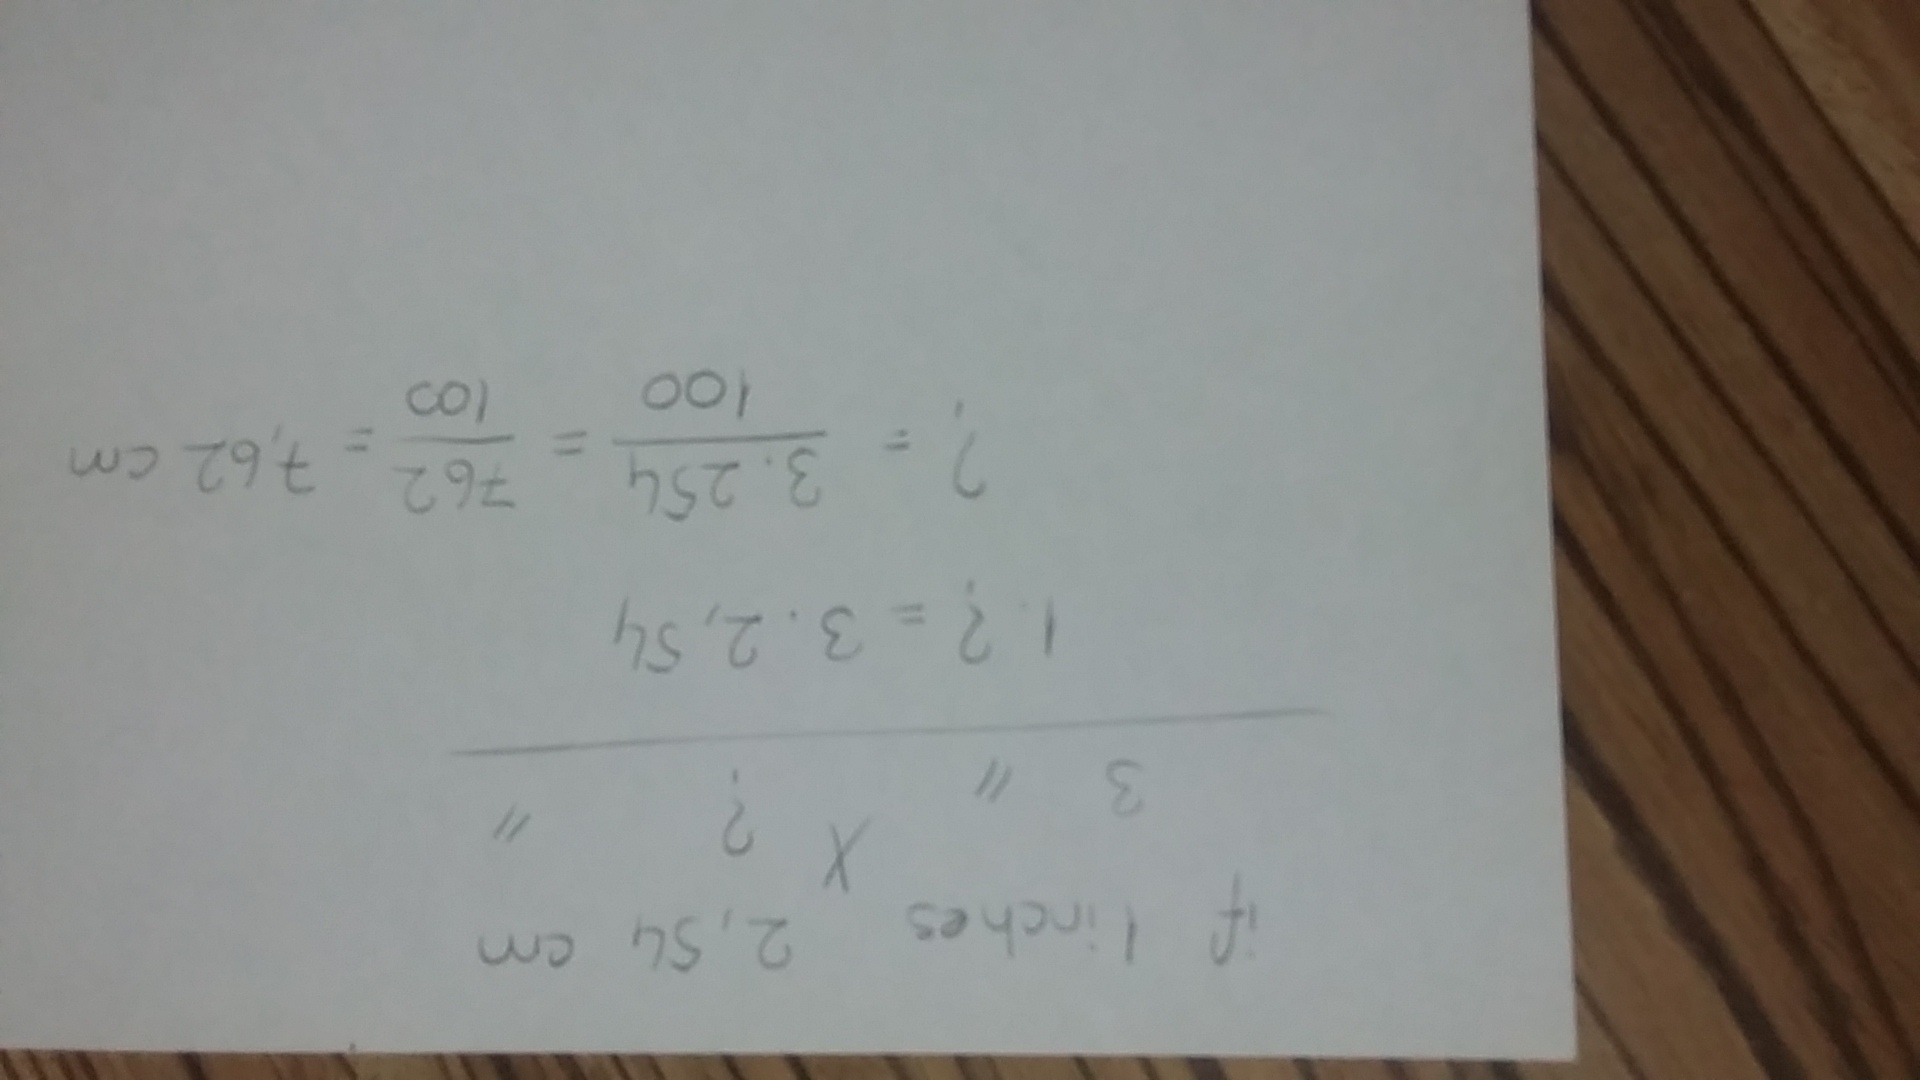 if 1 inches 2,54 cm
X
3 " ? "
1.? = 3.2,54
? = 3.254/100 = 762/100 = 7,62 cm